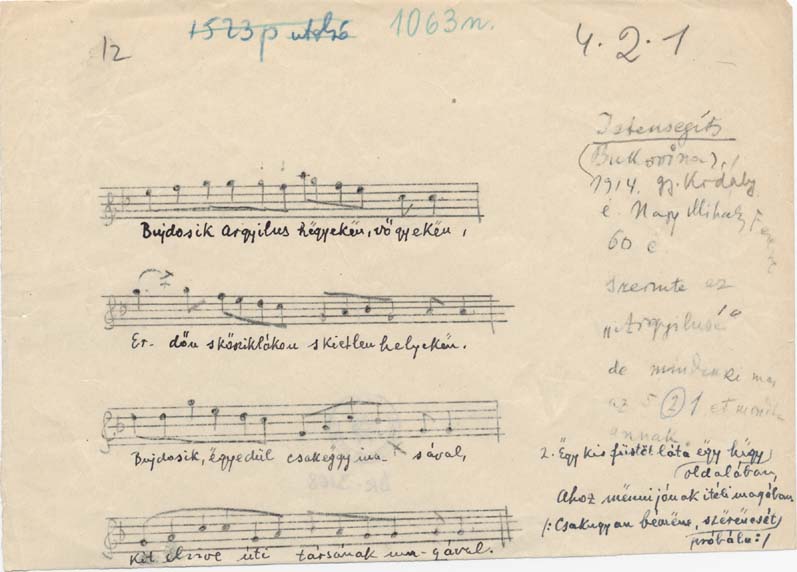 12
1523p utolsó
1063n.
4.2.1
Istensegíts
(Bukovina),
1914. gy. Kodály
é. Nagy Mihály
60 é
szerinte az
„Argyilusé"
de mindenki más
az 5 2 1
annak
Bujdosik Argyilus hëgyekën, vőgyekën,
Er- dőn s kősziklákon s kietlen helyekën.
Bujdosik, ëgyedül csak ëggy ina- sával,
Kit elvive úti társának magával.
Br. 3168
2. Ëgy kis füstöt láta ëgy hëgy
oldalában,
Ahoz mënni jónak itéli magában
/: Csakugyan bémëne, szërëncsét
próbála :/